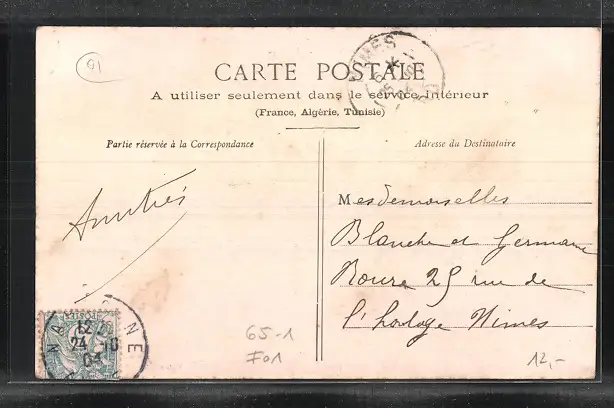 91
CARTE POSTALE
A utiliser seulement dans le service intérieur
(France, Algérie, Tunisie)
NIMES
Partie réservée à la Correspondance
Adresse du Destinataire
Amitiés
Mesdemoiselles
Blanche et Germaine
Roure 25 rue de
l'horloge Nimes
24
04
65-1
F01
12,-